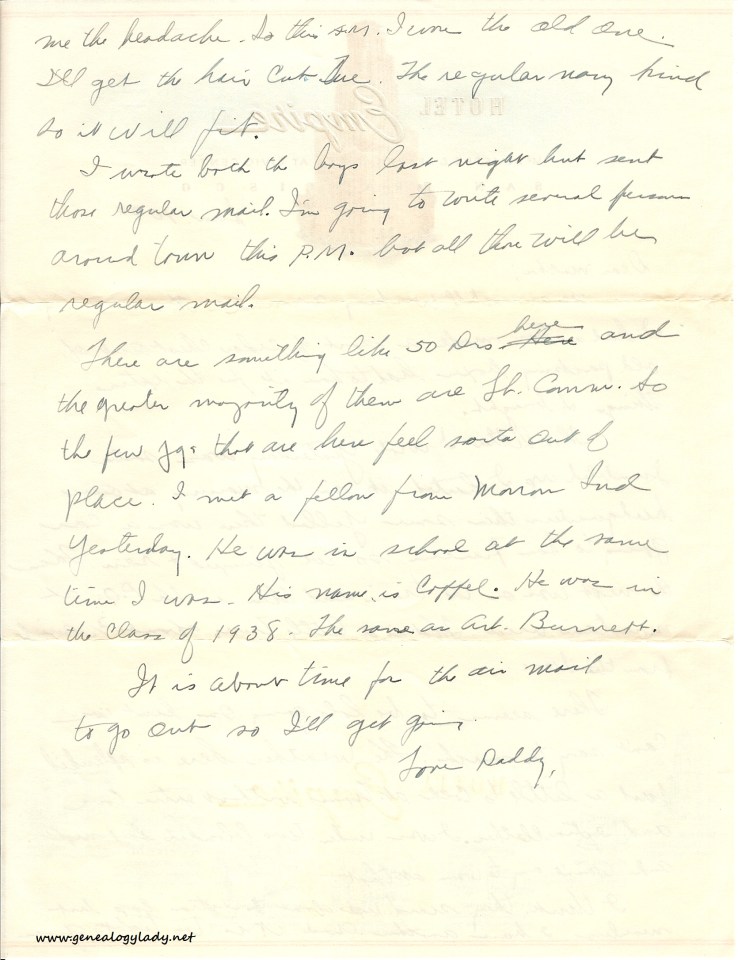 me the headache. So this A.M. I wore the old one.
I'll get the hair cut Tue. The regular navy kind
so it will fit.
I wrote both the boys last night but sent
those regular mail. I'm going to write several persons
around town this P.M. but all those will be
regular mail.
There are something like 50 Drs here and
the greater majority of them are Lt. Comm. So
the few jgs that are here feel sorta out of
place. I met a fellow from Marion Ind
yesterday. He was in school at the same
time I was. His name is Coffel. He was in
the class of 1938. The same as Art. Burnett.
It is about time for the air mail
to go out so I'll get going.
Love Daddy,
HOTEL
Empire
www.genealogylady.net